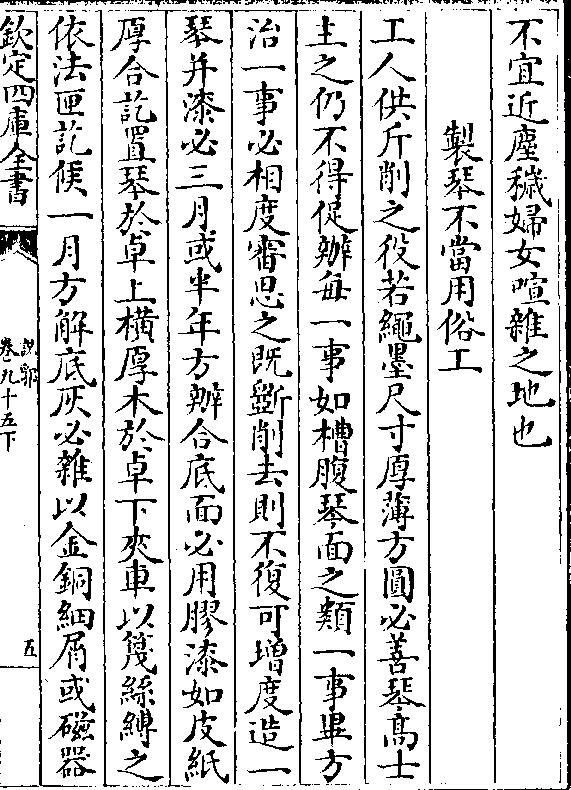 不宜近塵穢婦女喧雜之地也
製琴不當用俗工
工人供斤削之役若繩墨尺寸厚薄方圓必善琴高士
主之仍不得促辦每一事如槽腹琴面之類一事畢方
治一事必相度審思之既斵削去則不復可增度造一
琴并漆必三月或半年方辦合底面必用膠漆如皮紙
厚合訖置琴於卓上橫厚木於卓下夾車以篾絲縛之
依法匣訖候一月方解底灰必雜以金銅細屑或磁器
欽定四庫全書
說郛
卷九十五下
五